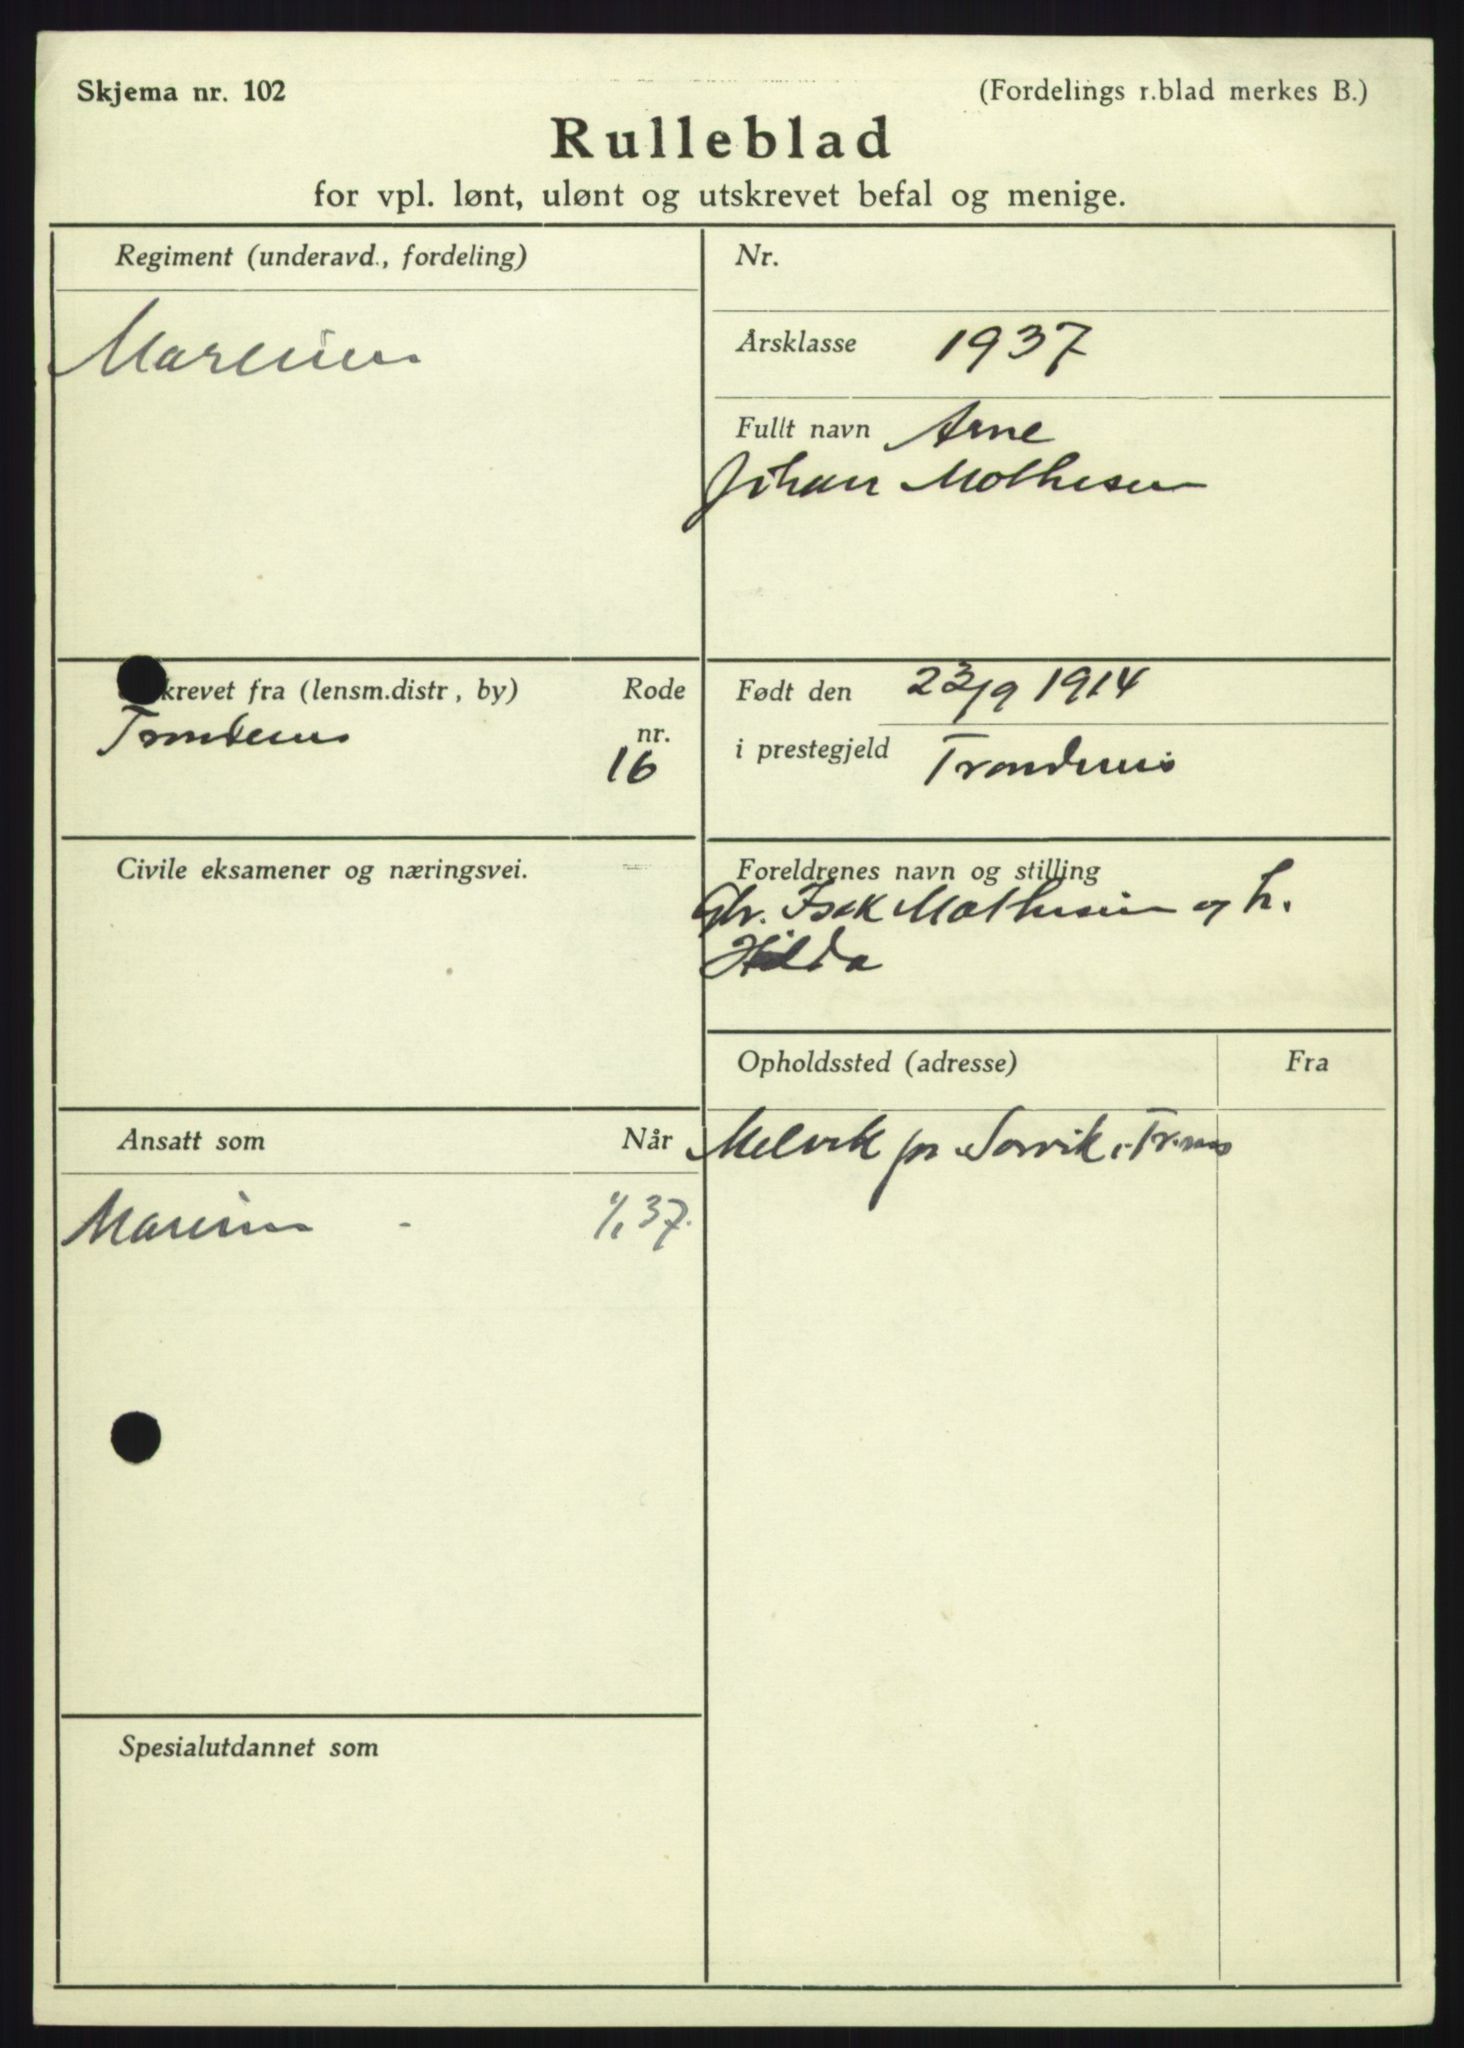 Skjema nr. 102
(Fordelings r.blad merkes B.)
Rulleblad
for vpl. lønt, ulønt og utskrevet befal og menige.
Regiment (underavd., fordeling)
Marinen
Nr.
Årsklasse 1937
Fullt navn Arne
Johan Mathesen
krevet fra (lensm.distr, by)
Rode
nr.
Trondenes
16
Født den 23/9 1914
i prestegjeld Trondenes
Civile eksamener og næringsvei.
Foreldrenes navn og stilling
Gbr. Isak Mathesen og h.
Hilda
Ansatt som
Når
Marinen - 1/1 37.
Opholdssted (adresse)
Fra
Melvik pr. Sørvik i Tr.nes
Spesialutdannet som